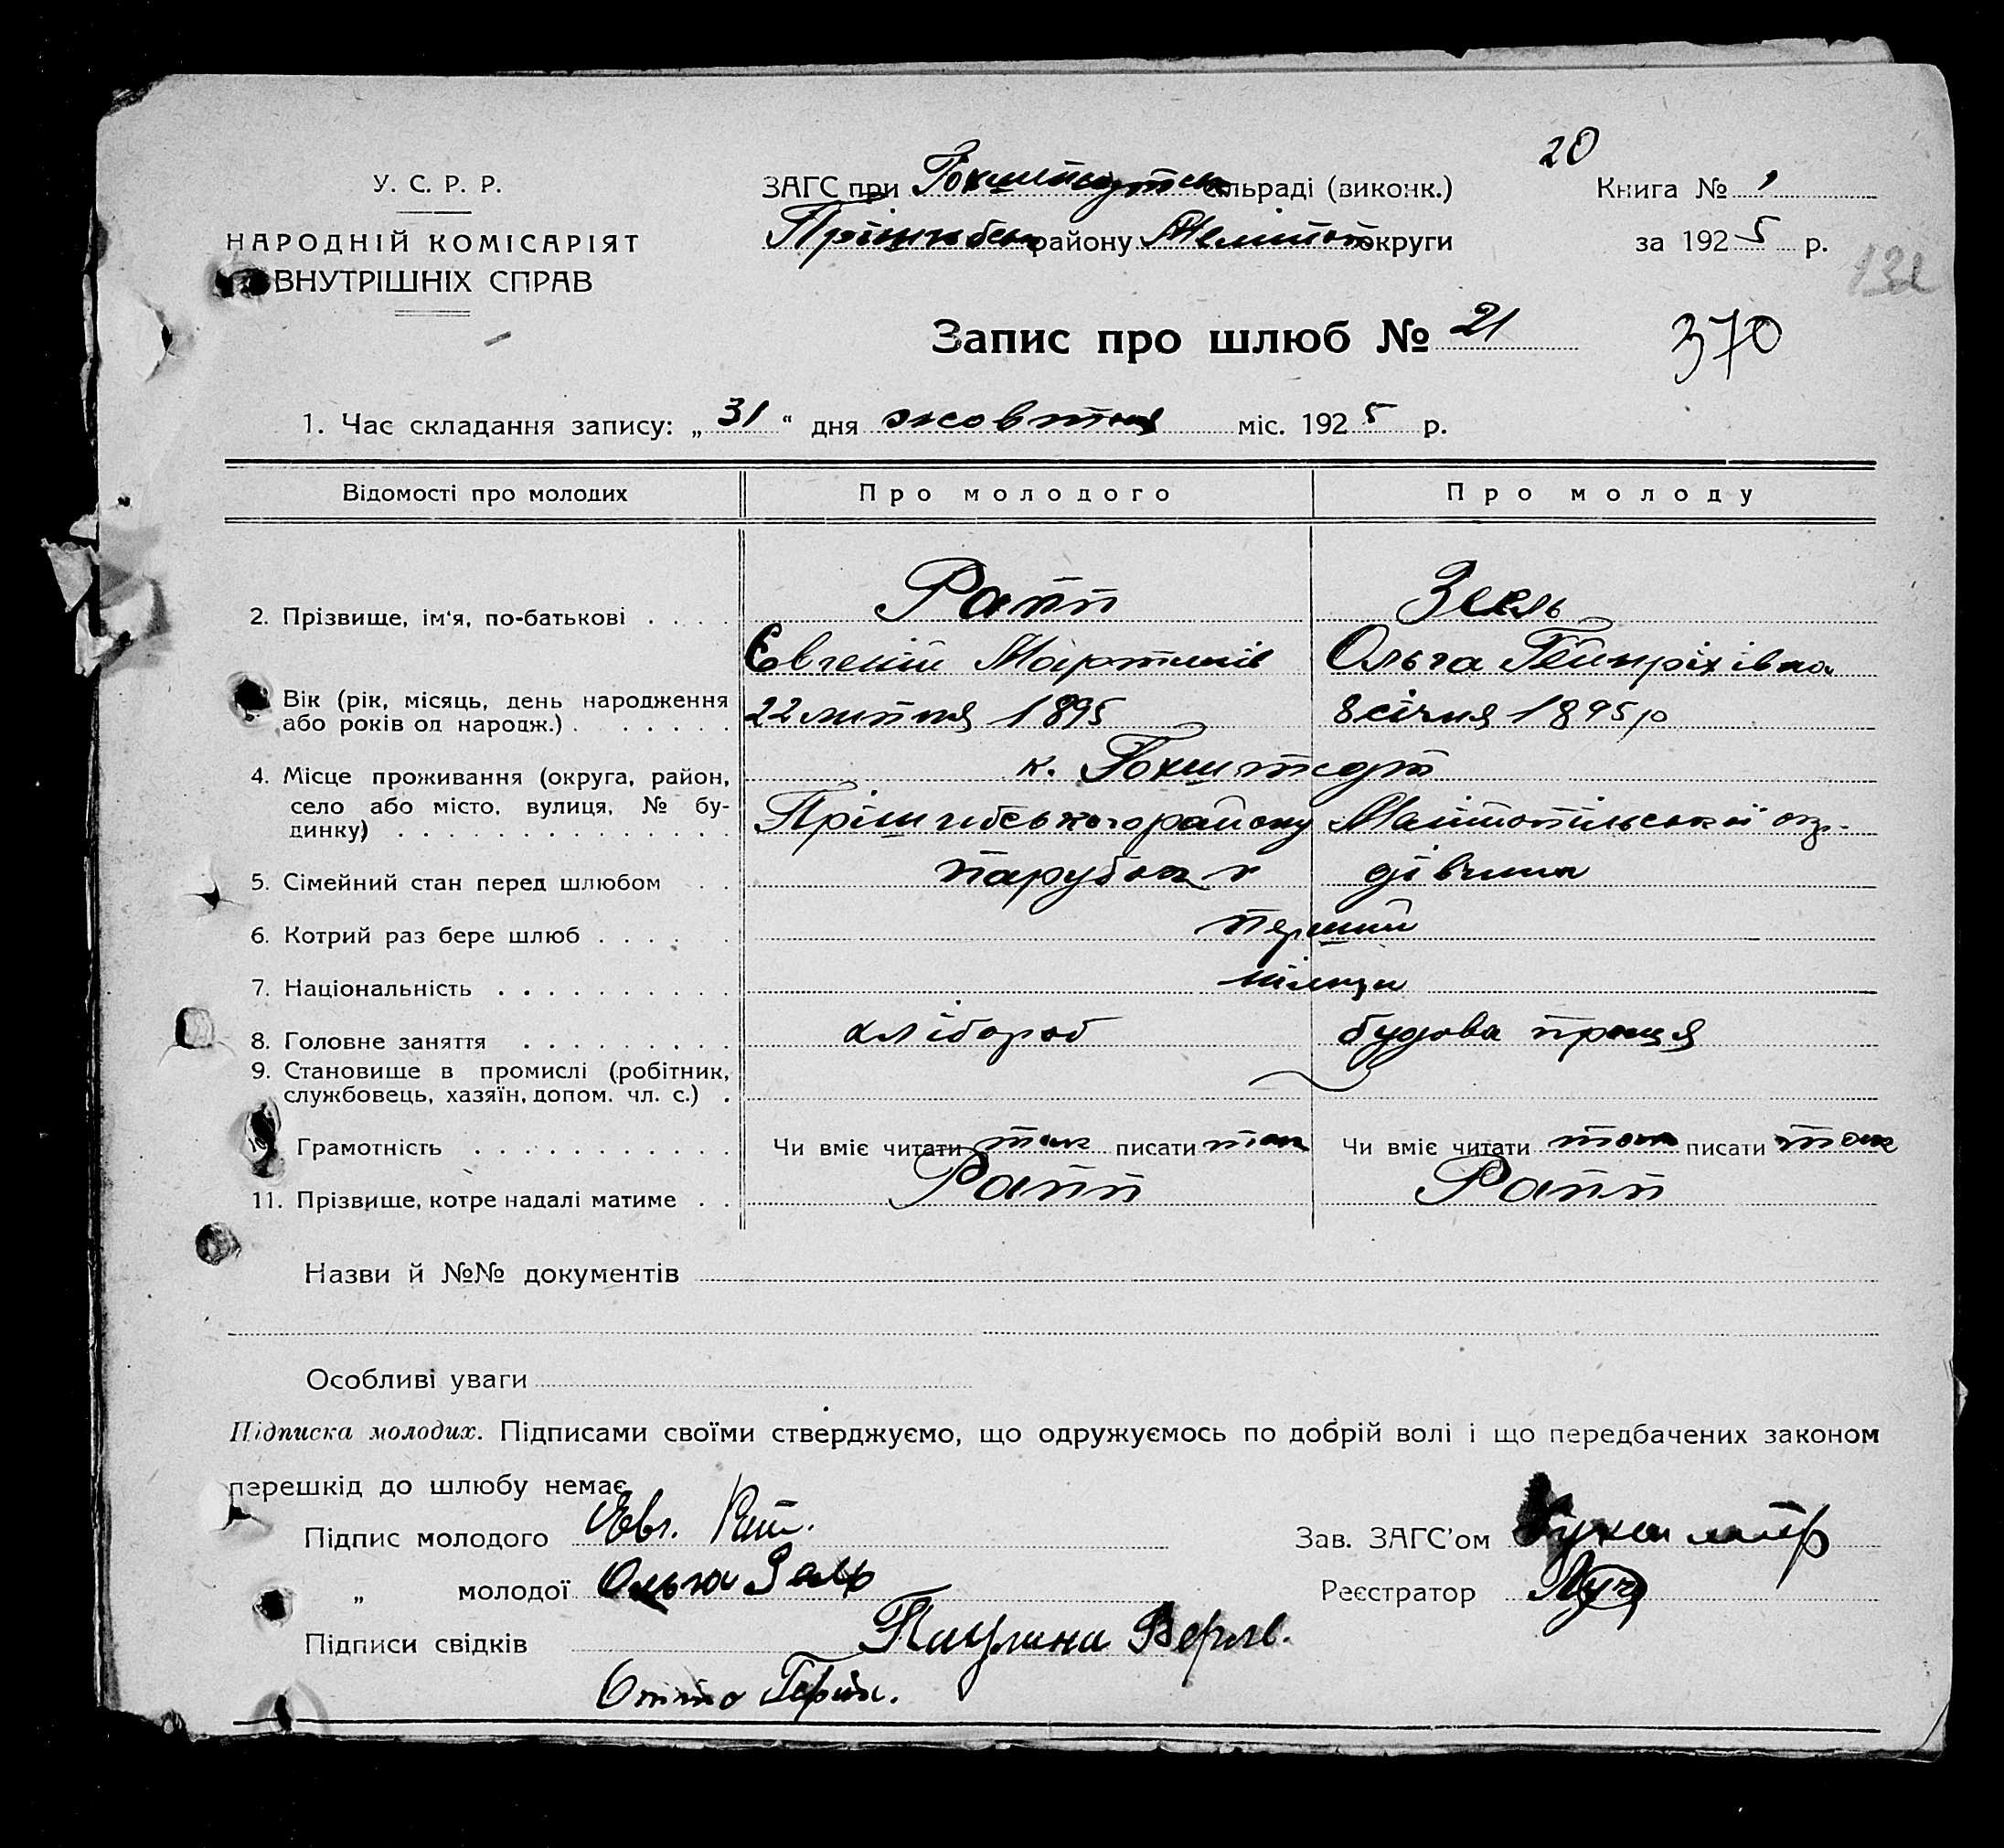 20
У. С. Р. Р.
ЗАГС при Гохштадтськ сільраді (виконк.)
Книга № 1
НАРОДНІЙ КОМІСАРІЯТ
ВНУТРІШНІХ СПРАВ
Прішибськ району Меліт округи
за 1925 р.
132
Запис про шлюб № 21
370
1. Час складання запису: „31“ дня жовтня міс. 1925 р.
Відомості про молодих
Про молодого
Про молоду
2. Прізвище, ім'я, по-батькові
Рапп
Євгеній Мартинів
Зель
Ольга Гейнріхівна
Вік (рік, місяць, день народження
або років од народж.)
22 липня 1895
8 січня 1895 р
4. Місце проживання (округа, район,
село або місто, вулиця, № бу-
динку)
к. Гохштадт
Прішибського району Мелітопільської окр.
5. Сімейний стан перед шлюбом
парубок
дівчина
6. Котрий раз бере шлюб
перший
7. Національність
німці
8. Головне заняття
хлібороб
будова праця
9. Становище в промислі (робітник,
службовець, хазяїн, допом. чл. с.)
10 Грамотність
Чи вміє читати так писати так
Чи вміє читати так писати так
11. Прізвище, котре надалі матиме
Рапп
Рапп
Назви й №№ документів
Особливі уваги
Підписка молодих. Підписами своїми стверджуємо, що одружуємось по добрій волі і що передбачених законом
перешкід до шлюбу немає
Підпис молодого Євг. Рап.
Зав. ЗАГС'ом
„ молодої Ольга Зель
Реєстратор
Підписи свідків Паулина
Отто